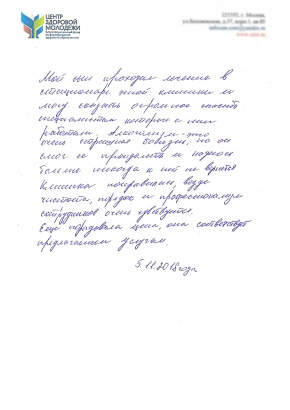 ЦЕНТР
ЗДОРОВОЙ
МОЛОДЕЖИ
Мой сын проходил лечение в
стационаре этой клиники и
могу сказать огромное спасибо
специалистам которые с ним
работали. Алкоголизм - это
очень страшная болезнь, но он
смог ее преодолеть и надеюсь
больше никогда к ней не вернется
Клиника понравилась, везде
чистота, порядок и профессионализм
сотрудников очень чувствуется.
Еще порадовала цена, она соответствует
предлагаемым услугам.
5.11.2018 года